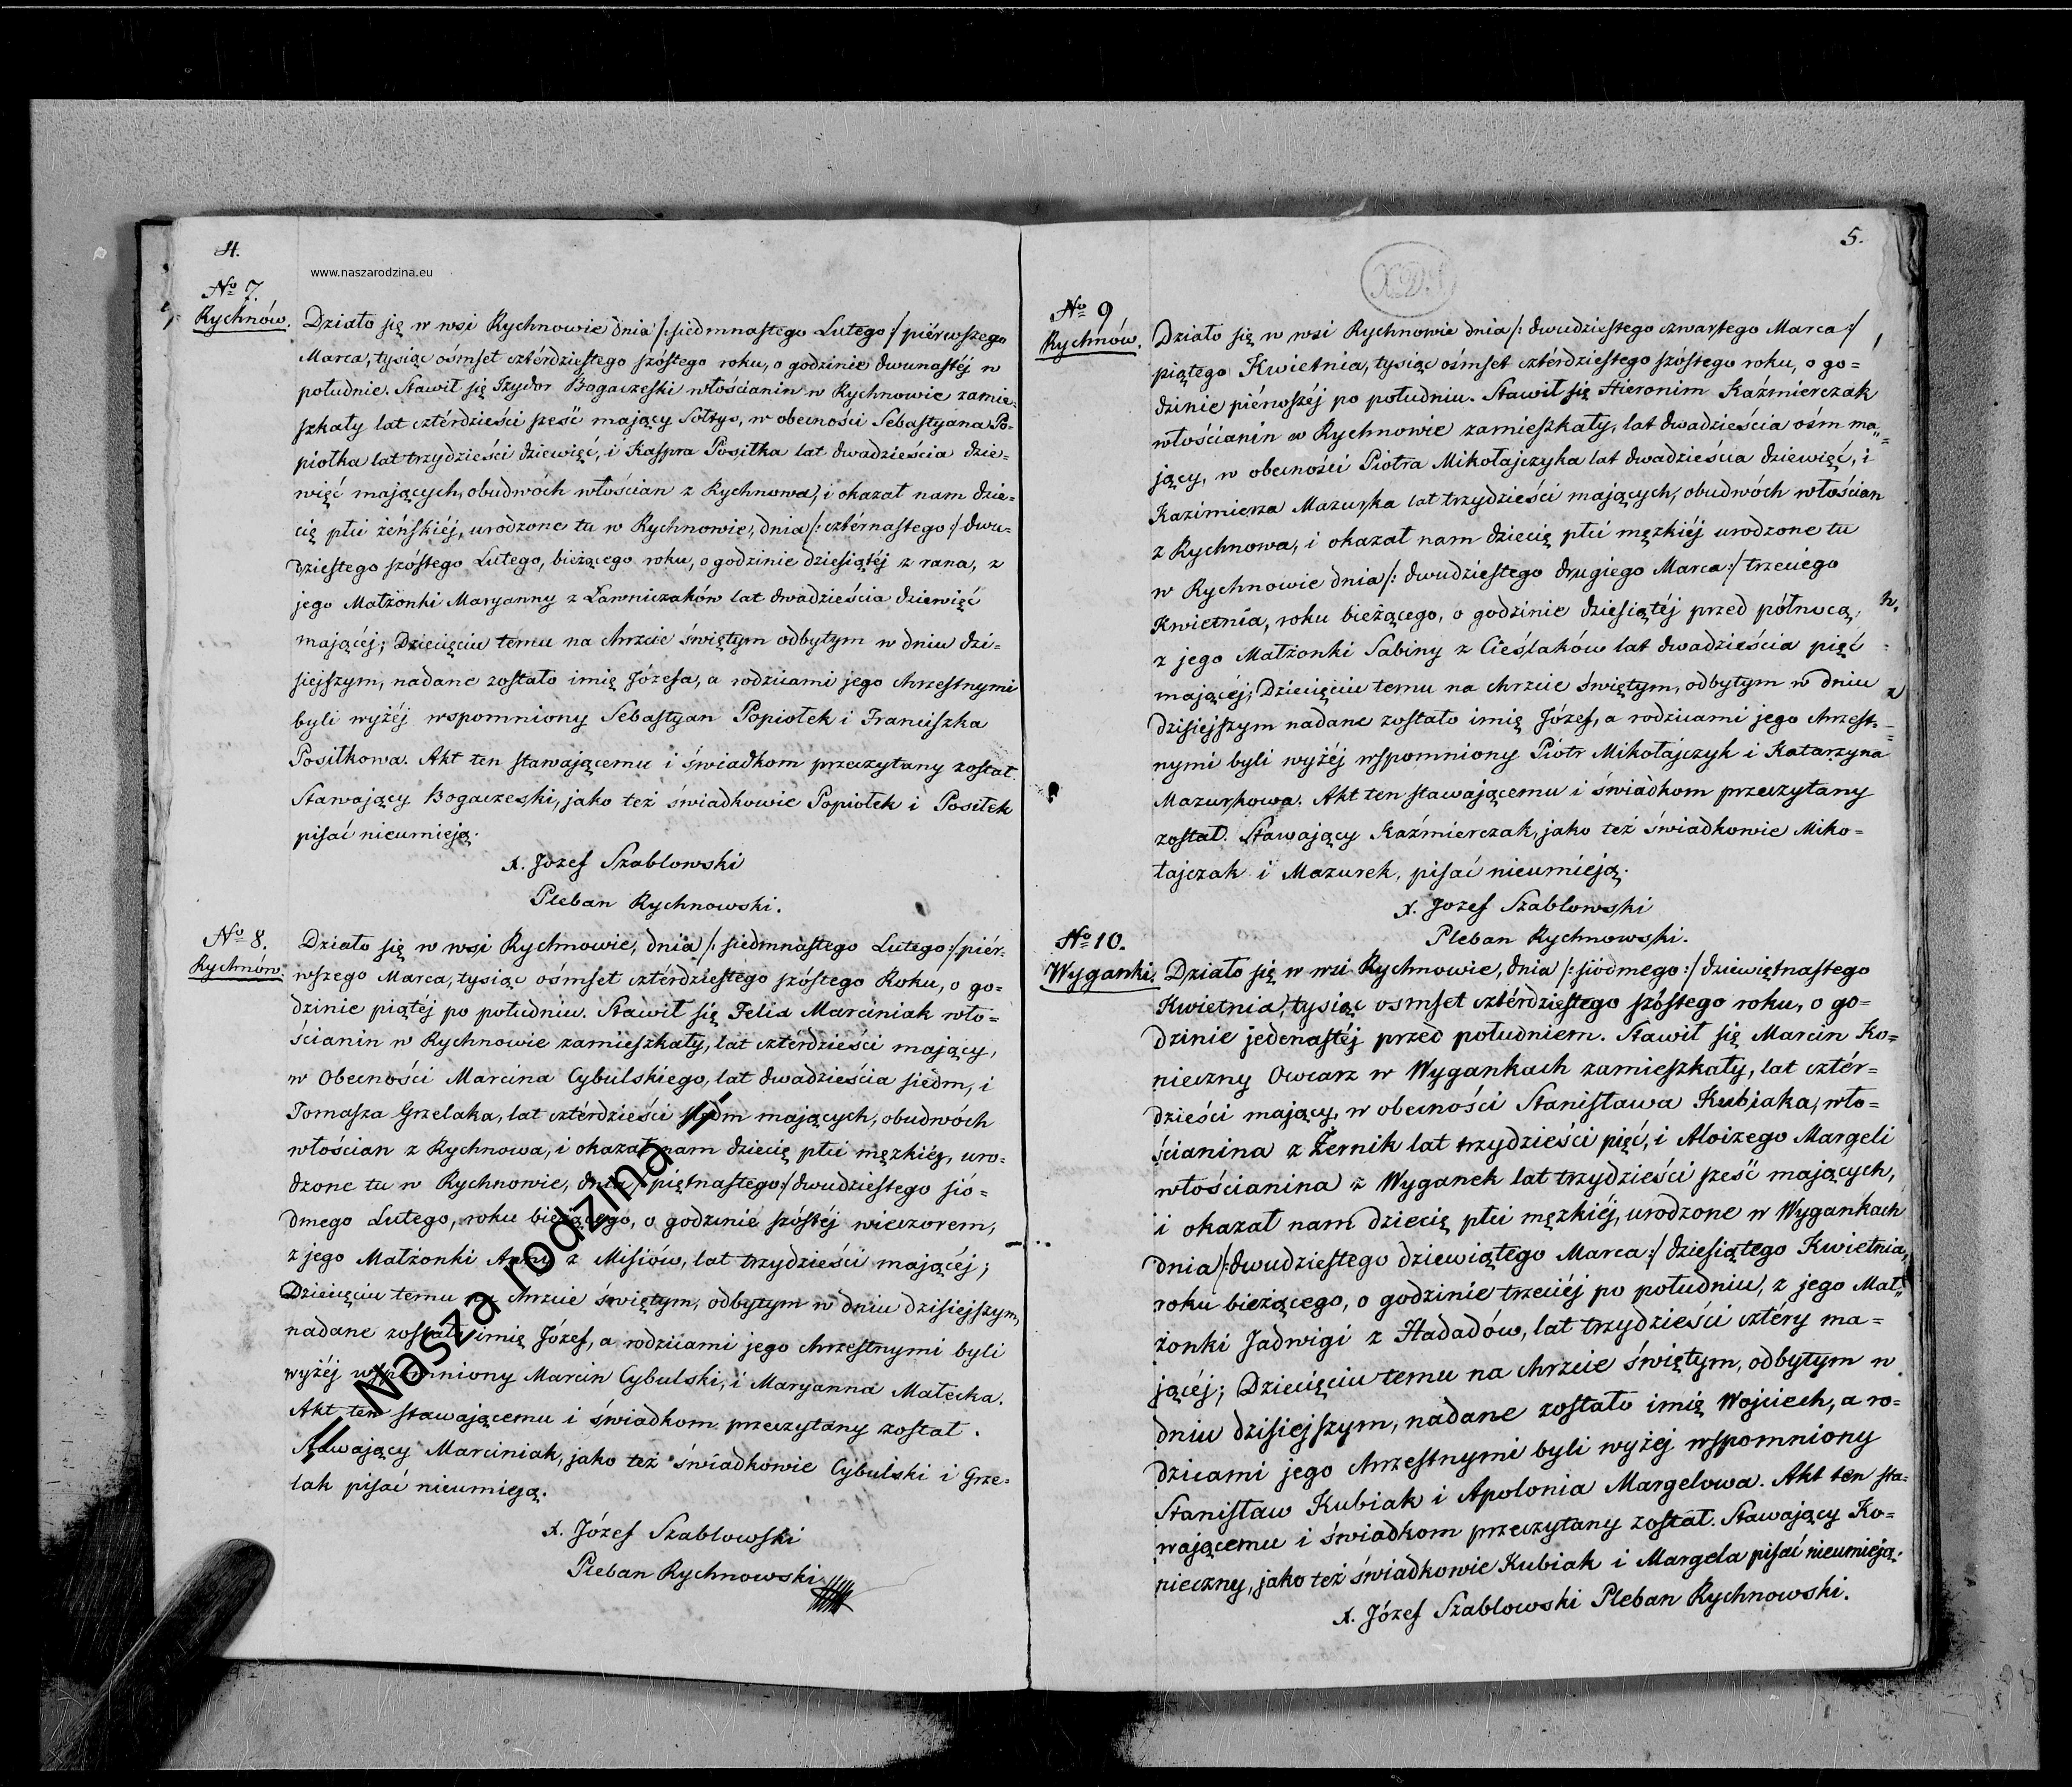 4.
www.naszarodzina.eu
No 7.
Rychnów.
Działo się w wsi Rychnowie dnia /: siedmnastego Lutego :/ piérwszego
Marca, tysiąc ośmset cztérdziestego szóstego roku, o godzinie dwunastéj w
południe. Stawił się Izydor Bogaczeski włościanin w Rychnowie zamie=
szkały lat cztérdzieści sześć mający Sołtys, w obecności Sebastyana Po=
piołka lat trzydzieści dziewięć, i Kaspra Posiłka lat dwadzieścia dzie=
więć mających, obudwóch włościan z Rychnowa, i okazał nam dzie=
cię płci żeńskiéj, urodzone tu w Rychnowie, dnia /: cztérnastego :/ dwu=
dziestego szóstego Lutego, bieżącego roku, o godzinie dziesiątéj z rana, z
jego Małżonki Maryanny z Ławniczaków lat dwadzieścia dziewięć
mającéj; Dziecięciu temu na chrzcie świętym odbytym w dniu dzi=
siejszym, nadane zostało imię Józefa, a rodzicami jego chrzestnymi
byli wyżéj wspomniony Sebastyan Popiołek i Franciszka
Posiłkowa. Akt ten stawającemu i świadkom przeczytany został.
Stawający Bogaczeski, jako też świadkowie Popiołek i Posiłek
pisać nieumieją.
X. Jozef Szablowski
Pleban Rychnowski.
No 8.
Rychnów.
Działo się w wsi Rychnowie, dnia /: siedmnastego Lutego :/ piér=
wszego Marca, tysiąc ośmset cztérdziestego szóstego Roku, o go=
dzinie piątéj po południu. Stawił się Felix Marciniak wło=
ścianin w Rychnowie zamieszkały, lat cztérdzieści mający,
w Obecności Marcina Cybulskiego, lat dwadzieścia siedm, i
Tomasza Grzelaka, lat cztérdzieści siedm mających, obudwóch
włościan z Rychnowa, i okazał nam dziecię płci męzkiéj, uro=
dzone tu w Rychnowie, dnia /: piętnastego :/ dwudziestego sió=
dmego Lutego, roku bieżącego, o godzinie szóstéj wieczorem,
z jego Małżonki Anny z Misiów, lat trzydzieści mającéj;
Dziecięciu temu na chrzcie świętym, odbytym w dniu dzisiejszym,
nadane zostało imię Józef, a rodzicami jego chrzestnymi byli
wyżéj wspomniony Marcin Cybulski, i Maryanna Małecka.
Akt ten stawającemu i świadkom przeczytany został.
Stawający Marciniak, jako też świadkowie Cybulski i Grze=
lak pisać nieumieją.
X. Józef Szablowski
Pleban Rychnowski
// Nasza rodzina //
5.
No 9
Rychnów.
Działo się w wsi Rychnowie dnia /: dwudziestego czwartego Marca :/
piątego Kwietnia, tysiąc ośmset cztérdziestego szóstego roku, o go=
dzinie piérwszéj po południu. Stawił się Hieronim Kaźmierczak
włościanin w Rychnowie zamieszkały, lat dwadzieścia ośm ma=
jący, w obecności Piotra Mikołajczyka lat dwadzieścia dziewięć, i
Kazimierza Mazurka lat trzydzieści mających, obudwóch włościan
z Rychnowa, i okazał nam dziecię płci męzkiéj urodzone tu
w Rychnowie dnia /: dwudziestego drugiego Marca :/ trzeciego
Kwietnia, roku bieżącego, o godzinie dziesiątéj przed północą,
z jego Małżonki Sabiny z Cieślaków lat dwadzieścia pięć
mającéj; Dziecięciu temu na chrzcie świętym, odbytym w dniu
dzisiejszym nadane zostało imię Józef, a rodzicami jego chrzest=
nymi byli wyżéj wspomniony Piotr Mikołajczyk i Katarzyna
Mazurkowa. Akt ten stawającemu i świadkom przeczytany
został. Stawający Kaźmierczak, jako też świadkowie Miko=
łajczak i Mazurek, pisać nieumieją.
X. Jozef Szablowski
Pleban Rychnowski.
No 10.
Wyganki.
Działo się w wsi Rychnowie, dnia /: siódmego :/ dziewiętnastego
Kwietnia, tysiąc osmset cztérdziestego szóstego roku, o go=
dzinie jedenastéj przed południem. Stawił się Marcin Ko=
nieczny Owczarz w Wygankach zamieszkały, lat cztér=
dzieści mający, w obecności Stanisława Kubiaka, wło=
ścianina z Żernik lat trzydzieści pięć, i Aloizego Margeli
włościanina z Wyganek lat trzydzieści sześć mających,
i okazał nam dziecię płci męzkiéj, urodzone w Wygankach
dnia /: dwudziestego dziewiątego Marca :/ dziesiątego Kwietnia,
roku bieżącego, o godzinie trzeciéj po południu, z jego Mał=
żonki Jadwigi z Hadadów, lat trzydzieści cztéry ma=
jącéj; Dziecięciu temu na chrzcie świętym, odbytym w
dniu dzisiejszym, nadane zostało imię Wojciech, a ro=
dzicami jego chrzestnymi byli wyżej wspomniony
Stanisław Kubiak i Apolonia Margelowa. Akt ten sta=
wającemu i świadkom przeczytany został. Stawający Ko=
nieczny, jako też świadkowie Kubiak i Margela pisać nieumieją.
X. Józef Szablowski Pleban Rychnowski.